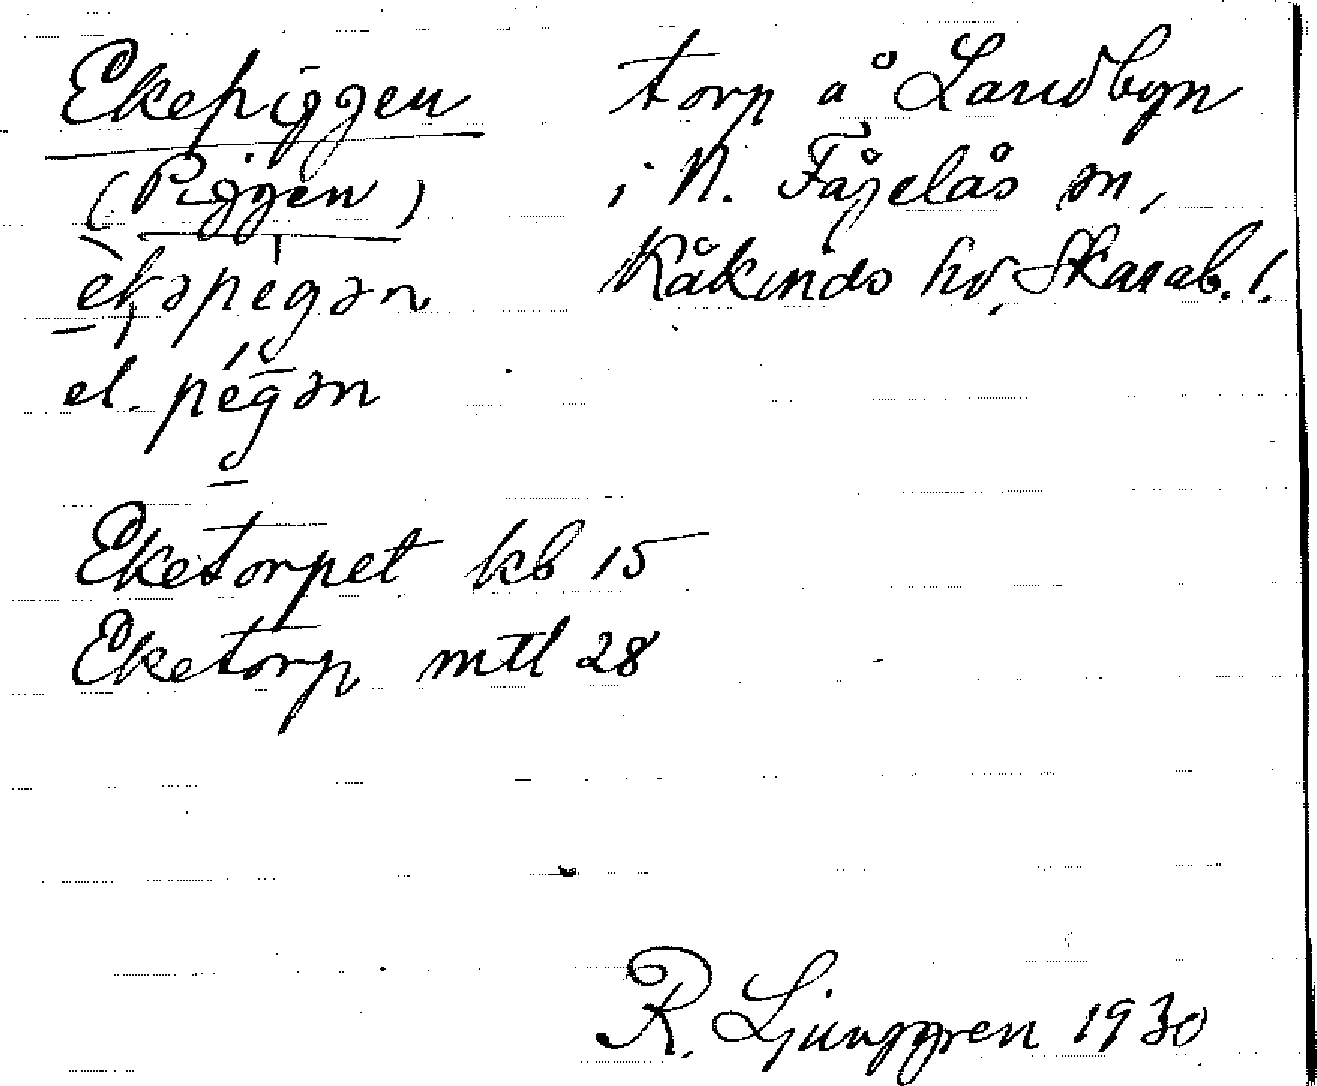 Ekepiggen torp å Landbyn
(Piggen) i N. Fågelås sn,
ekəpegən Kåkinds hd, Skarab. l.
el. pegən
Eketorpet kb 15
Eketorp mtl 28
R. Ljunggren 1930